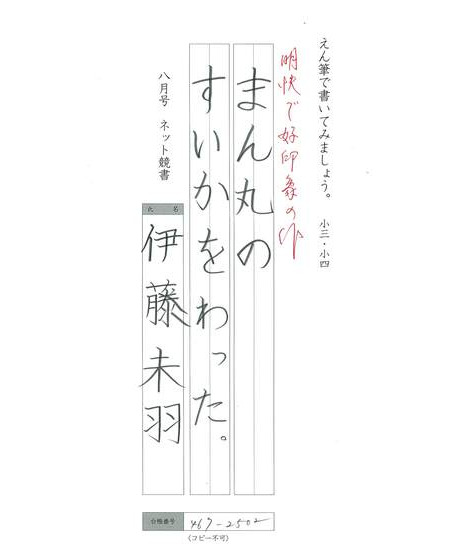 えん筆で書いてみましょう。 小三・小四
明快で好印象の作
まん丸の
すいかをわった。
八月号 ネット競書
氏 名
伊藤未羽
台帳番号 467-2502
(コピー不可)